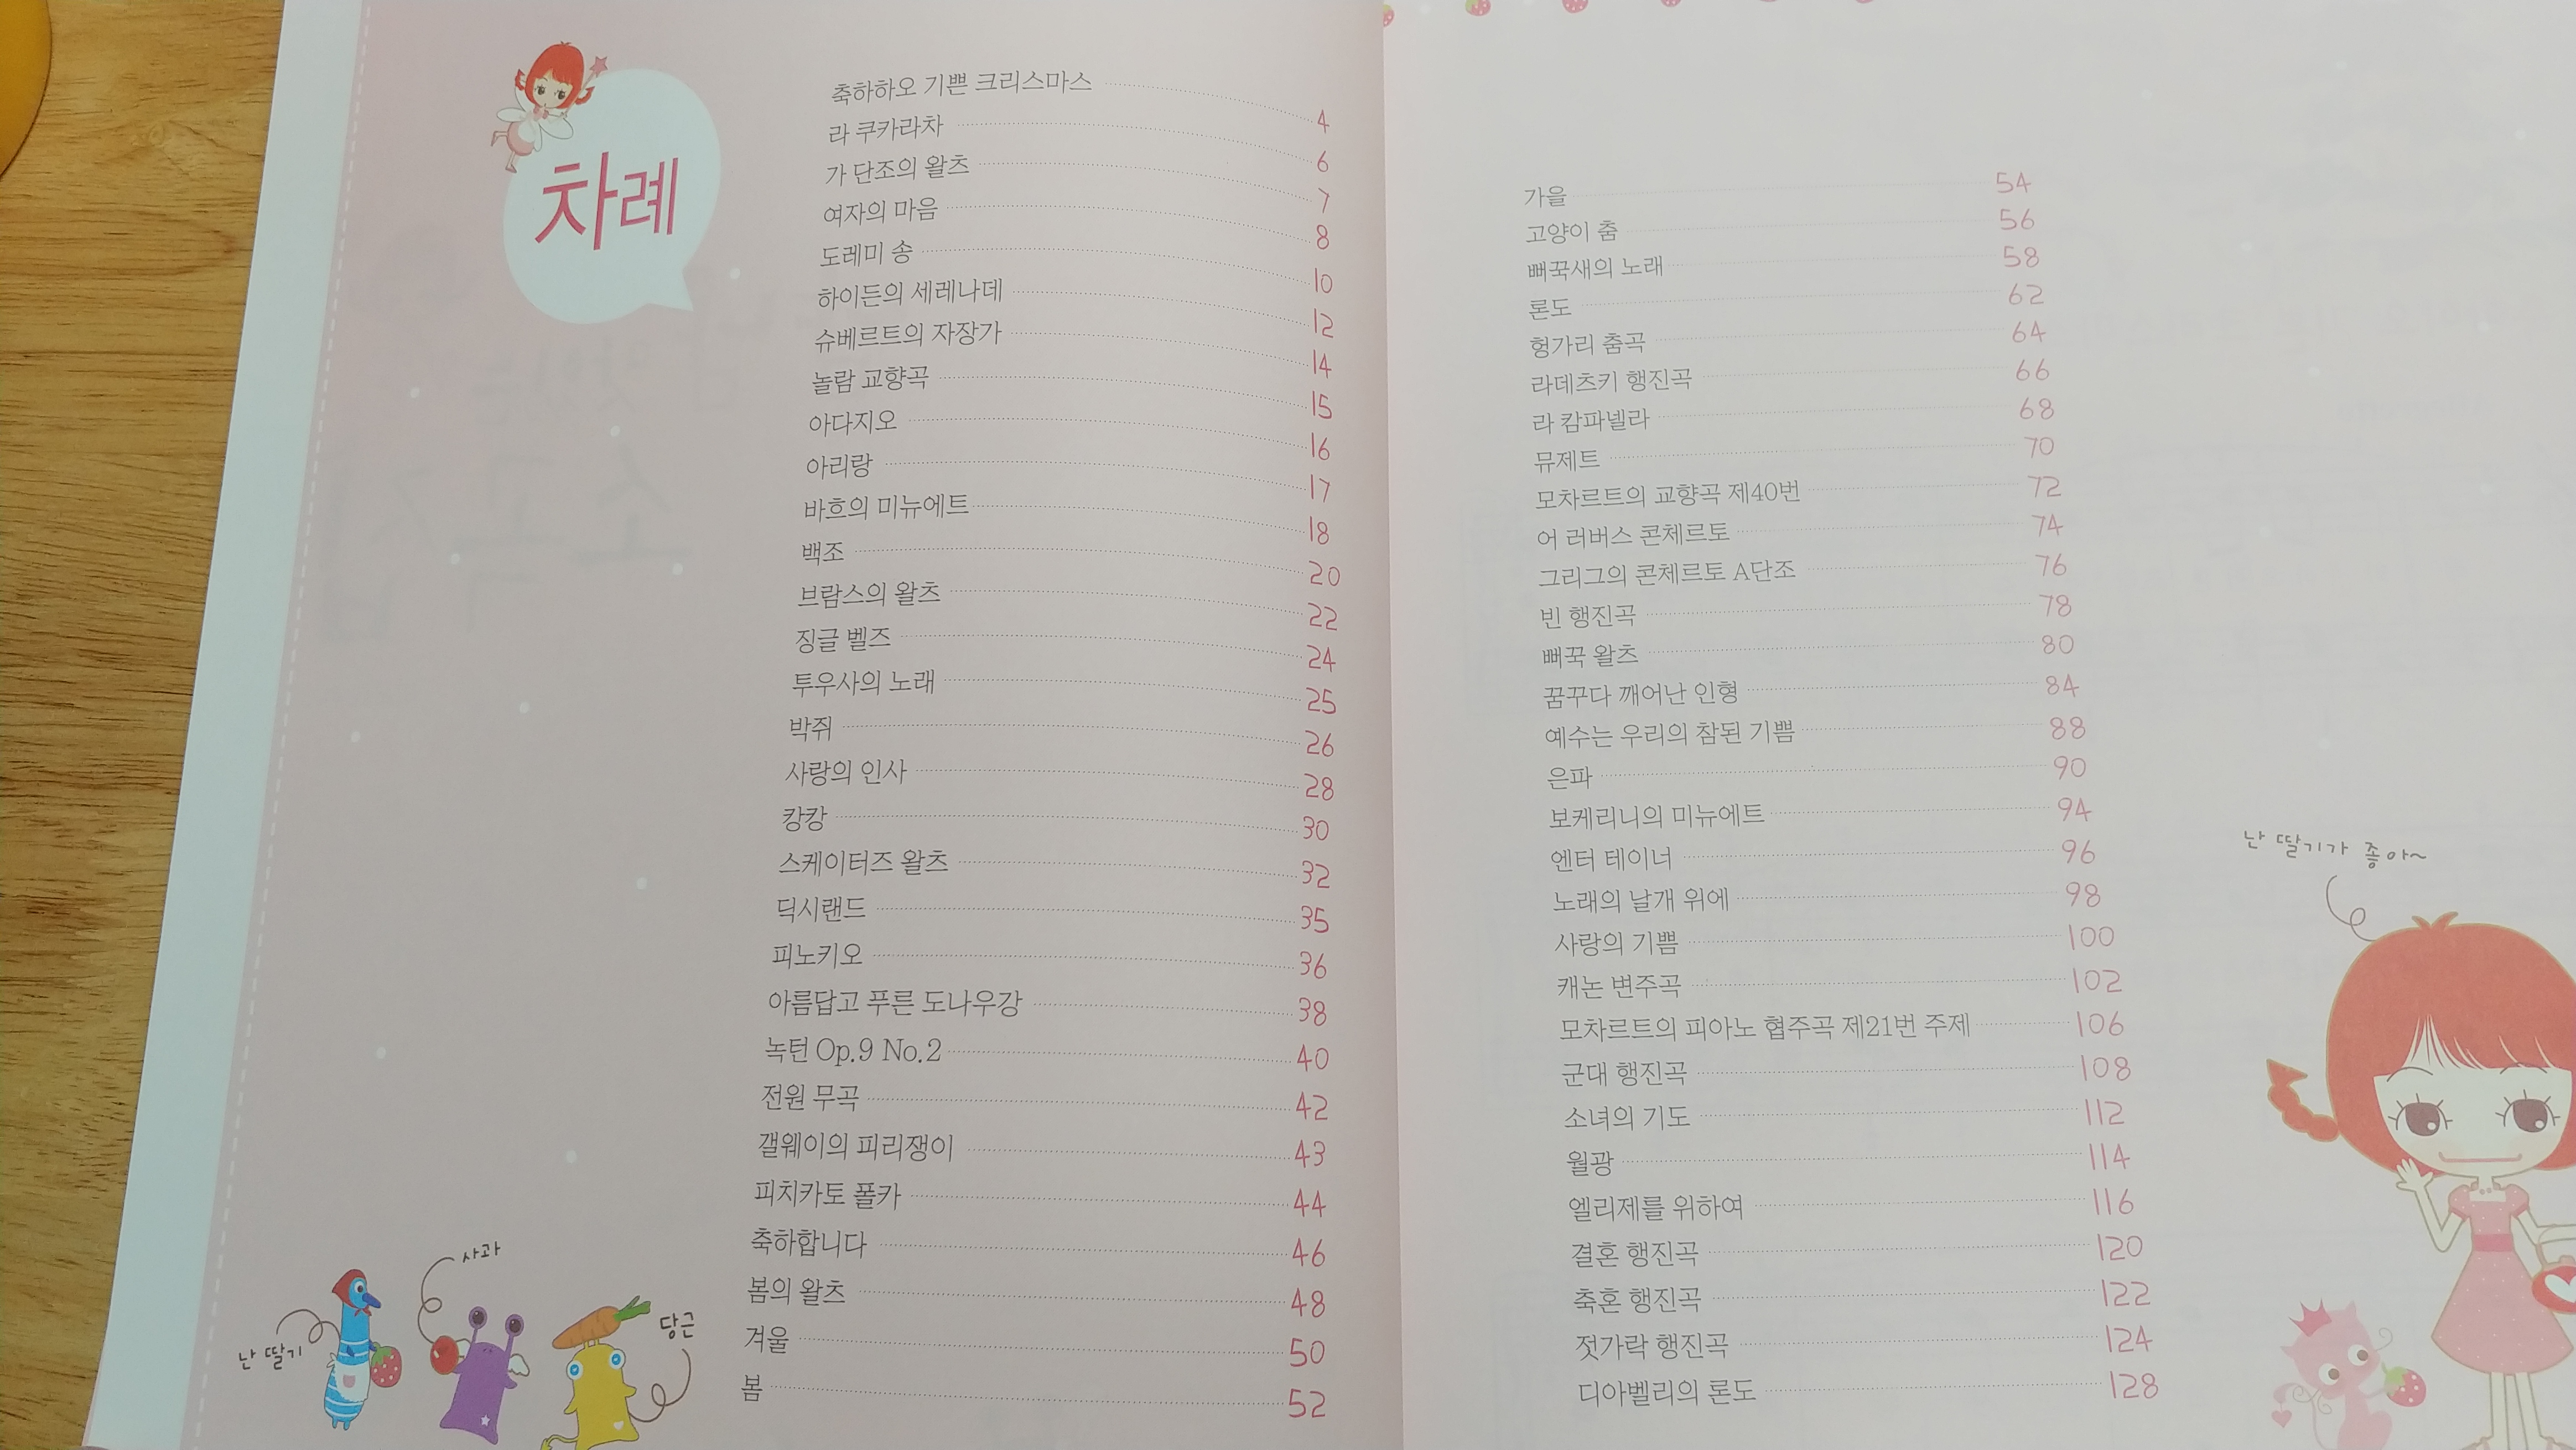 차례
축하하오 기쁜 크리스마스 4
라 쿠카라차 6
가 단조의 왈츠 7
여자의 마음 8
도레미 송 10
하이든의 세레나데 12
슈베르트의 자장가 14
놀람 교향곡 15
아다지오 16
아리랑 17
바흐의 미뉴에트 18
백조 20
브람스의 왈츠 22
징글 벨즈 24
투우사의 노래 25
박쥐 26
사랑의 인사 28
캉캉 30
스케이터즈 왈츠 32
딕시랜드 35
피노키오 36
아름답고 푸른 도나우강 38
녹턴 Op.9 No.2 40
전원 무곡 42
갤웨이의 피리쟁이 43
피치카토 폴카 44
축하합니다 46
봄의 왈츠 48
겨울 50
봄 52
난 딸기
사과
당근
가을 54
고양이 춤 56
뻐꾹새의 노래 58
론도 62
헝가리 춤곡 64
라데츠키 행진곡 66
라 캄파넬라 68
뮤제트 70
모차르트의 교향곡 제40번 72
어 러버스 콘체르토 74
그리그의 콘체르토 A단조 76
빈 행진곡 78
뻐꾹 왈츠 80
꿈꾸다 깨어난 인형 84
예수는 우리의 참된 기쁨 88
은파 90
보케리니의 미뉴에트 94
엔터 테이너 96
노래의 날개 위에 98
사랑의 기쁨 100
캐논 변주곡 102
모차르트의 피아노 협주곡 제21번 주제 106
군대 행진곡 108
소녀의 기도 112
월광 114
엘리제를 위하여 116
결혼 행진곡 120
축혼 행진곡 122
젓가락 행진곡 124
디아벨리의 론도 128
난 딸기가 좋아~